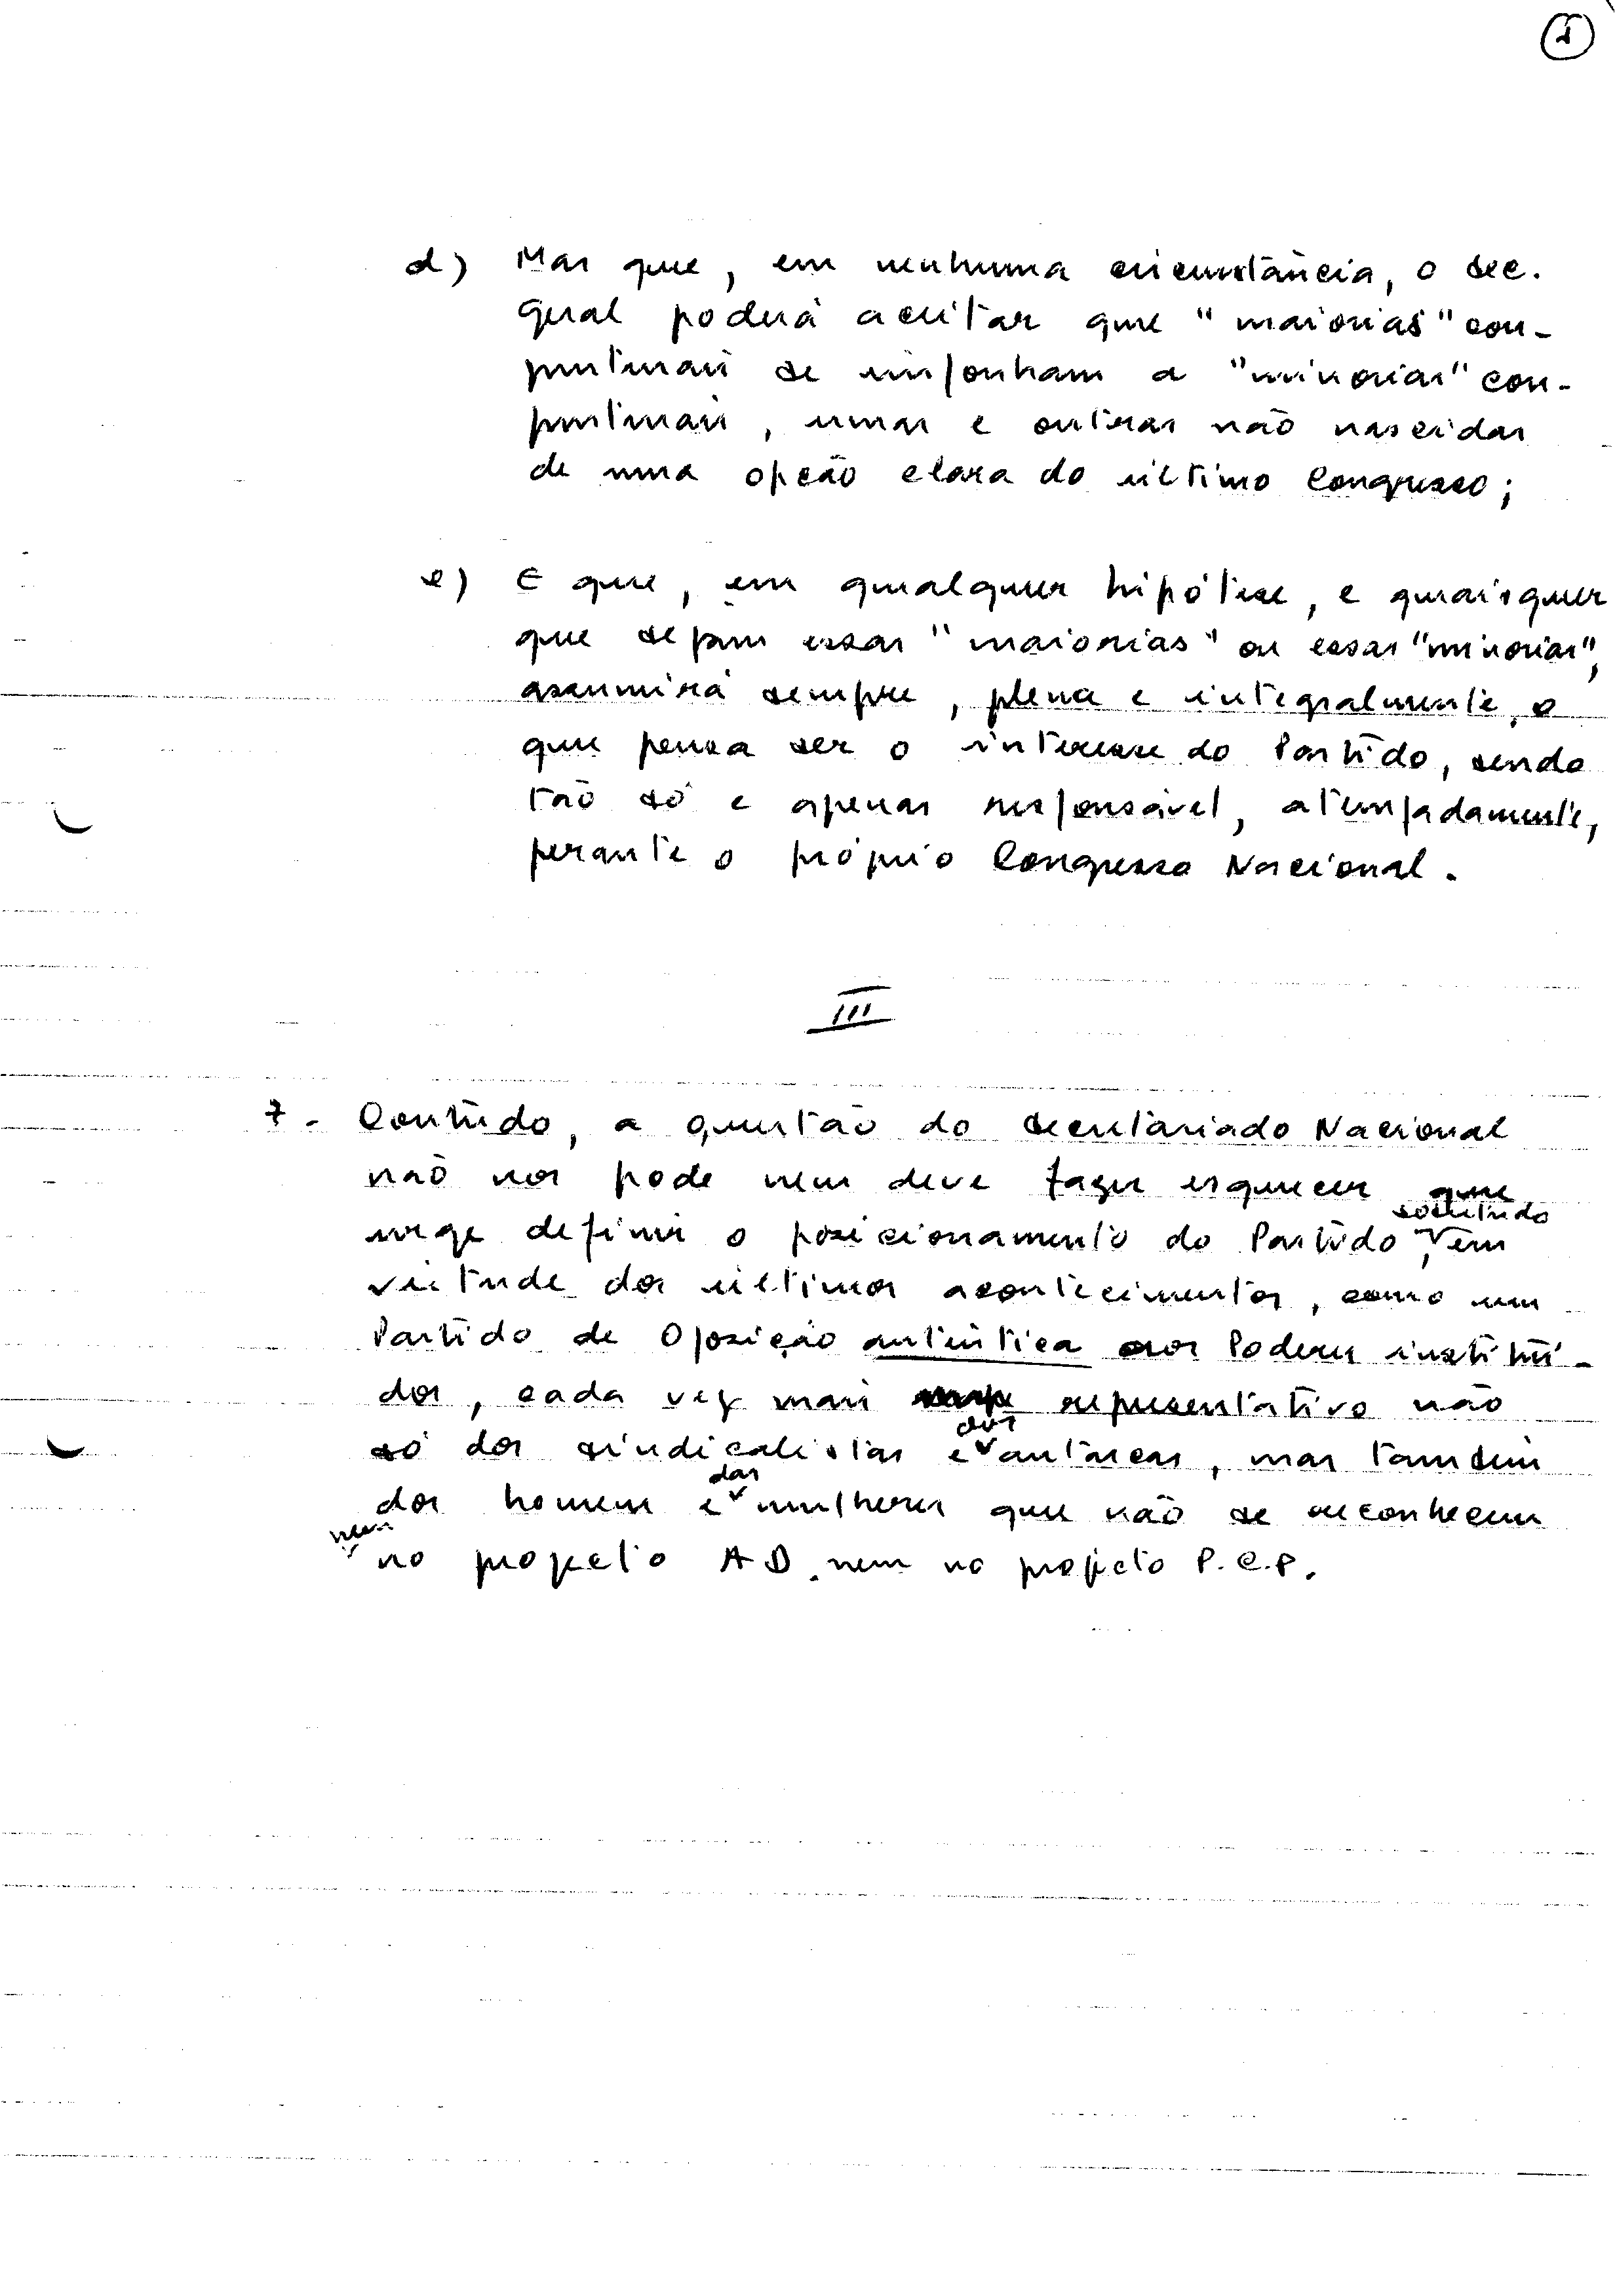 d) Mas que, em nenhuma circunstância, o sec.
geral poderá aceitar que "maiorias" con-
junturais se imponham a "minorias" con-
junturais, umas e outras não nascidas
de uma opção clara do último Congresso;
e) E que, em qualquer hipótese, e quaisquer
que sejam essas "maiorias" ou essas "minorias",
assumirá sempre, plena e integralmente, o
que pensa ser o interesse do Partido, sendo
tão só e apenas responsável, atempadamente,
perante o próprio Congresso Nacional.
III
7 - Contudo, a questão do Secretariado Nacional
não nos pode nem deve fazer esquecer que
urge definir o posicionamento do Partido, sobretudo em
virtude dos últimos acontecimentos, como um
Partido de Oposição autêntica aos Poderes instituí-
dos, cada vez mais representativo não
só dos sindicalistas e dos autarcas, mas também
dos homens e das mulheres que não se reconhecem
nem no projecto AD, nem no projecto P.C.P.